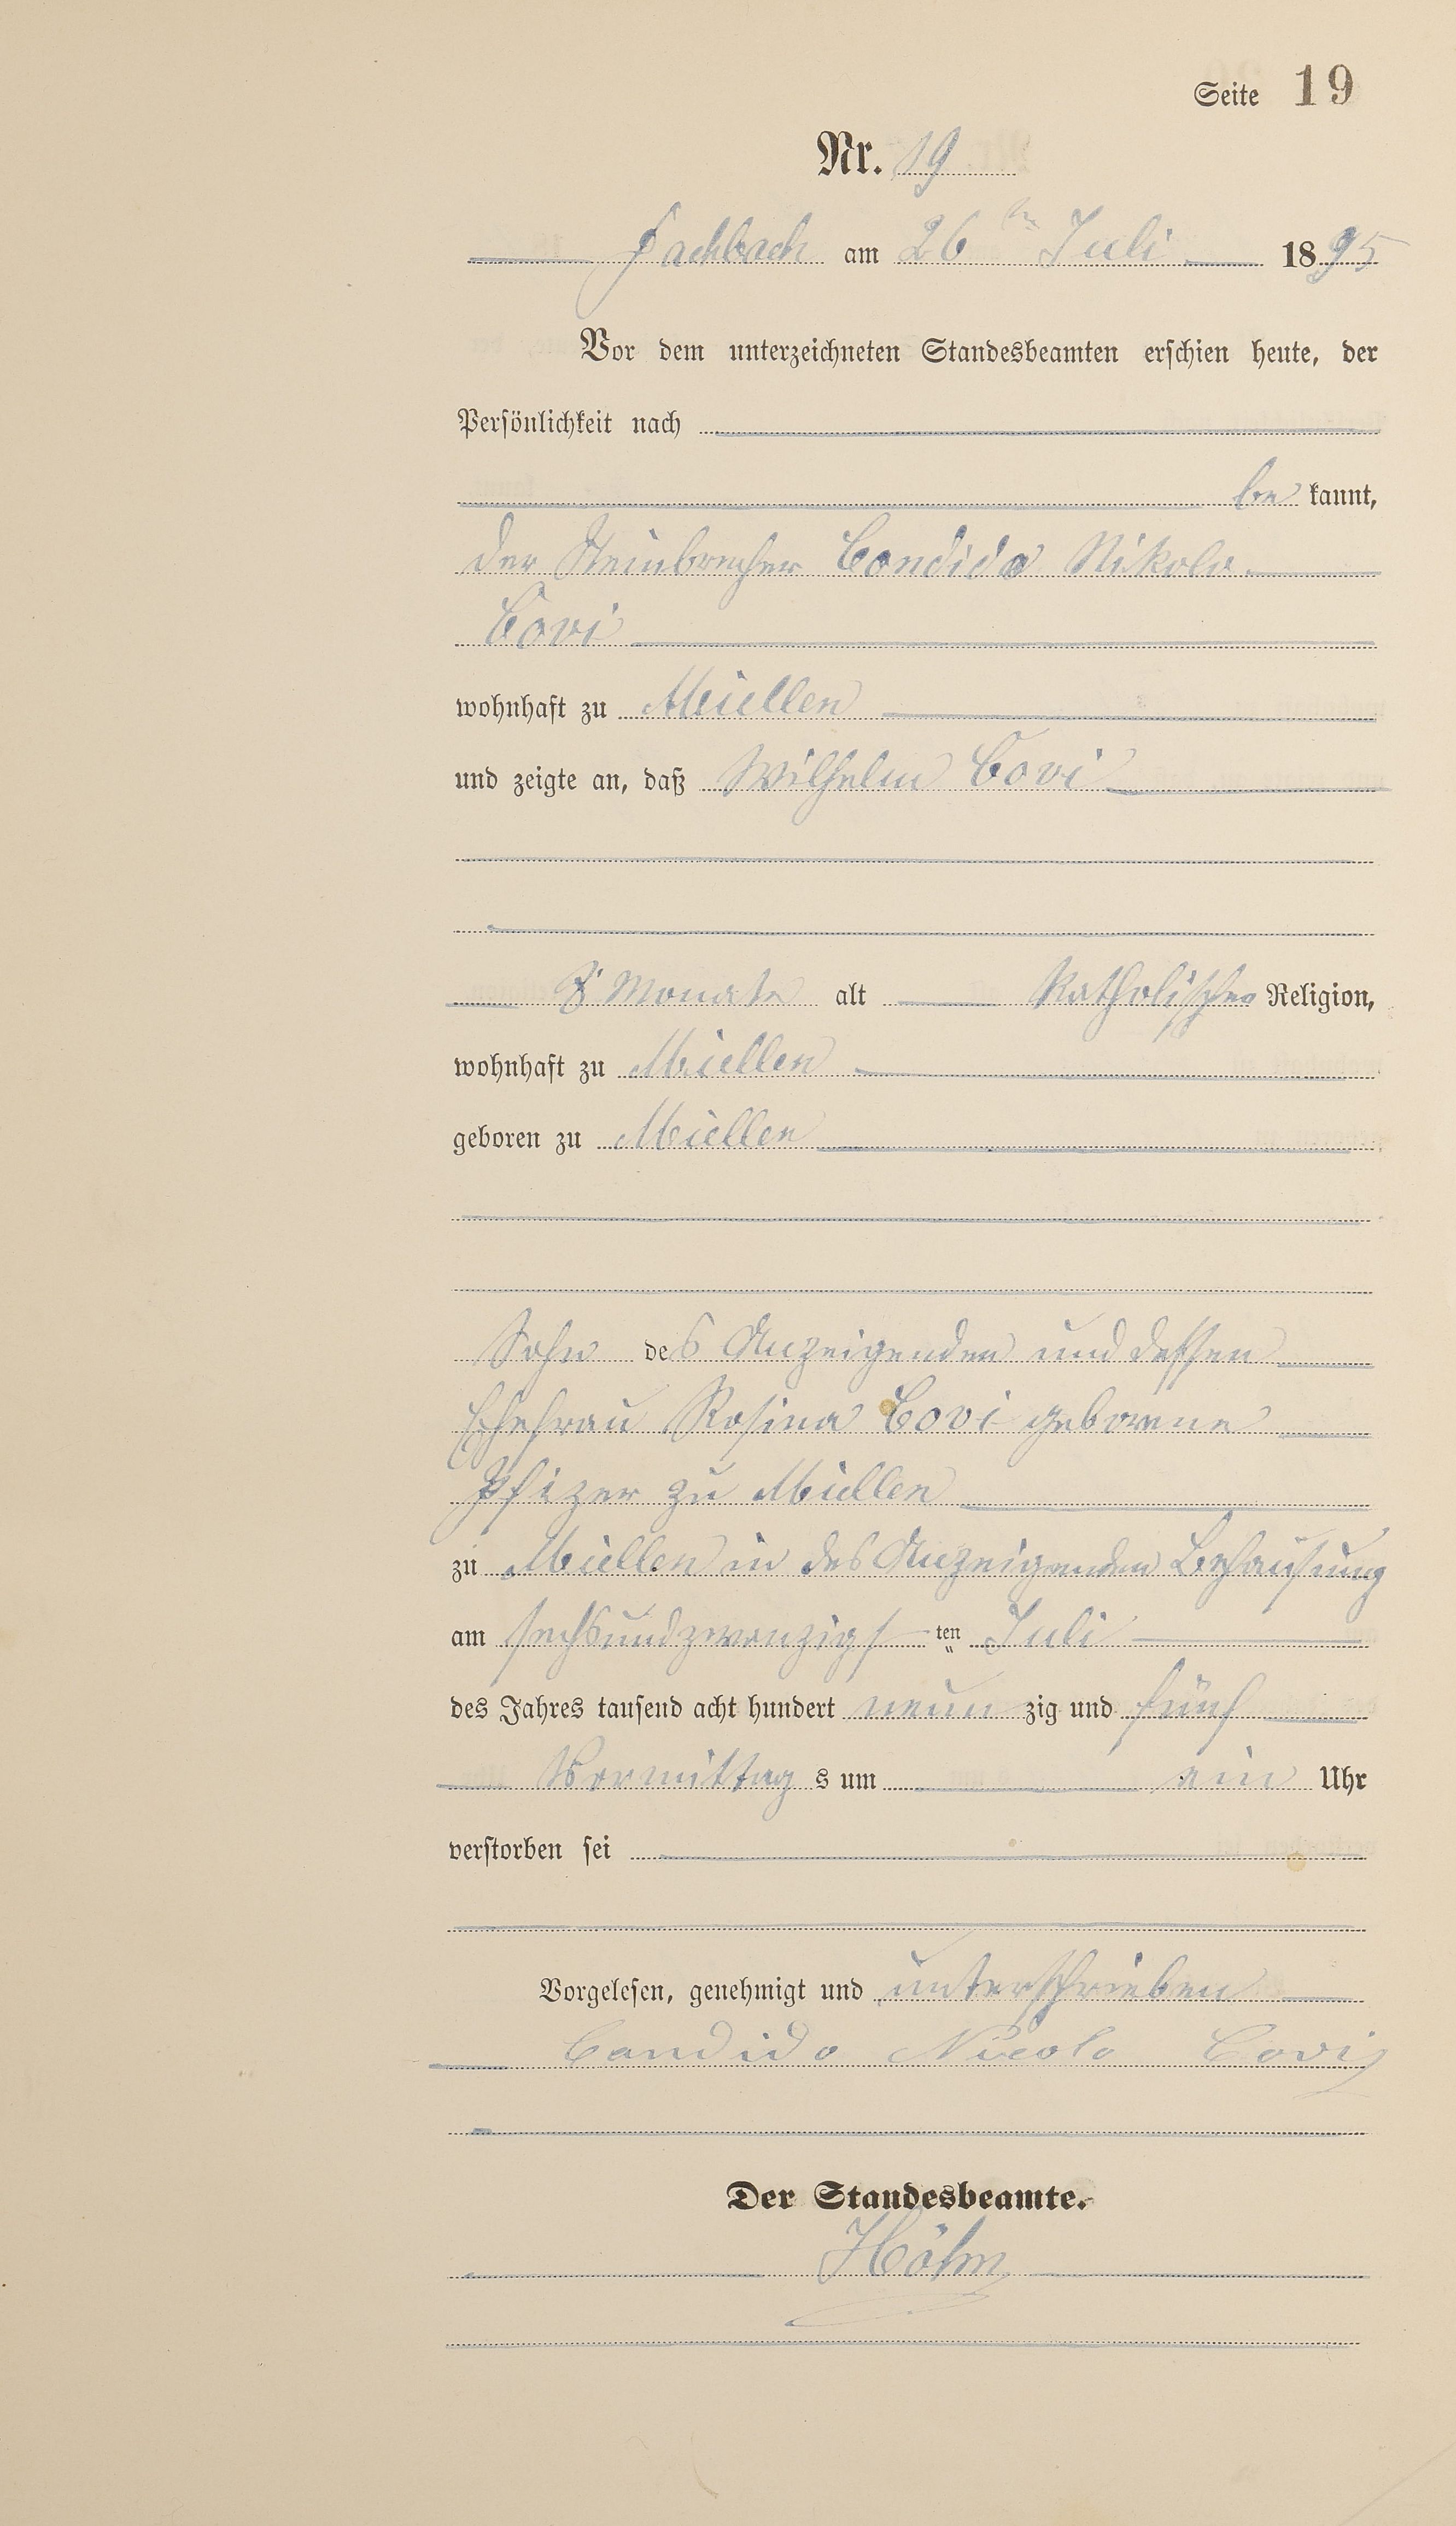 Seite 19
Nr. 19
Fachbach am 26ten Juli 1895
Vor dem unterzeichneten Standesbeamten erschien heute, der
Persönlichkeit nach
be kannt,
der Steinbrecher Candido Nikolo
Covi
wohnhaft zu Miellen
und zeigte an, daß Wilhelm Covi
8 Monate alt Katholischer Religion,
wohnhaft zu Miellen
geboren zu Miellen
Sohn des Anzeigenden und dessen
Ehefrau Rosina Covi geborene
Pfizer zu Miellen
zu Miellen in des Anzeigenden Behausung
am sechsundzwanzigs ten Juli
des Jahres tausend acht hundert neun zig und fünf
Vormittag s um ein Uhr
verstorben sei
Vorgelesen, genehmigt und unterschrieben
Candido Nicolo Covi
Der Standesbeamte.